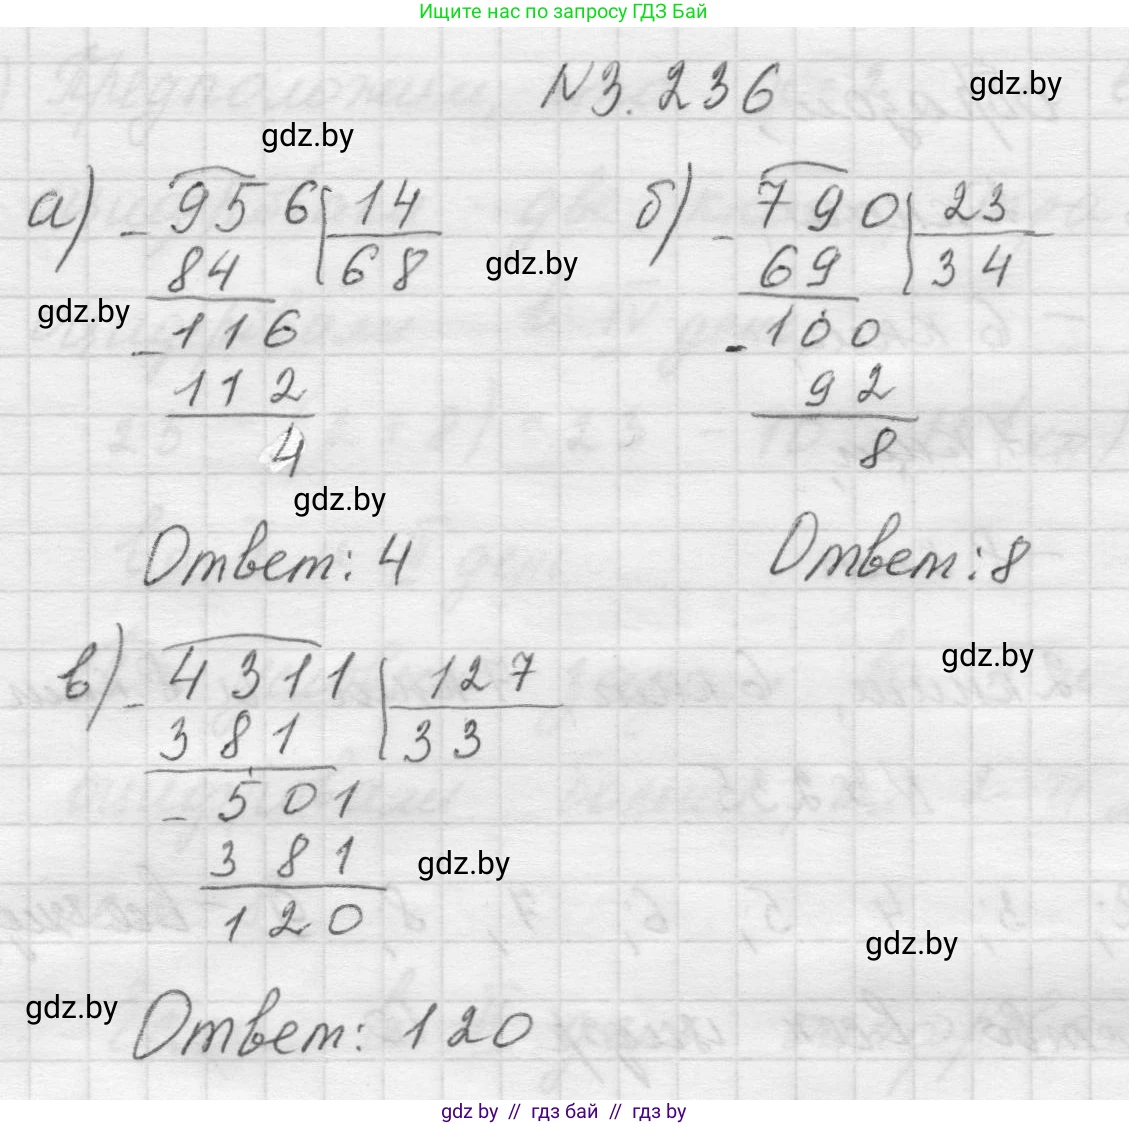 Ищите нас по запросу ГДЗ Бай
N 3.236
gdz.by
gdz.by
а) - 956 | 14
84 68
gdz.by
- 116
112
4
gdz.by
Ответ: 4
б) - 790 | 23
69 34
gdz.by
- 100
92
8
Ответ: 8
в) - 4311 | 127
gdz.by
381 33
- 501
381
gdz.by
120
gdz.by
gdz.by
Ответ: 120
gdz by // гдз бай // gdz by